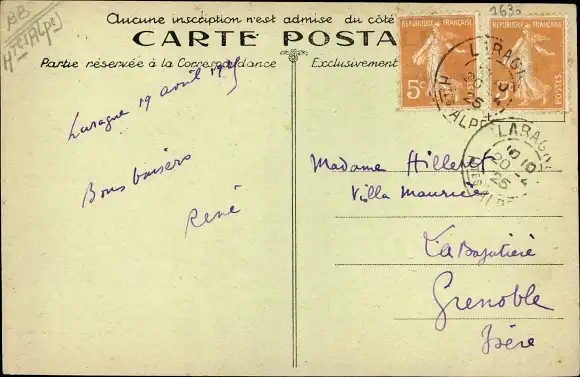 BB
Htes Alpes
7636
Aucune inscription n'est admise du côté
CARTE POSTA
Partie réservée à la Correspondance
Exclusivement
REPUBLIQUE FRANÇAISE
5c
POSTES
REPUBLIQUE FRANÇAISE
POSTES
LARAGNE
20 -4
25
LARAGNE
20 -4
25
Laragne 19 avril 1925
Bons baisers
René
Madame Hilleret
Villa Mauricée
La Bajatière
Grenoble
Isère